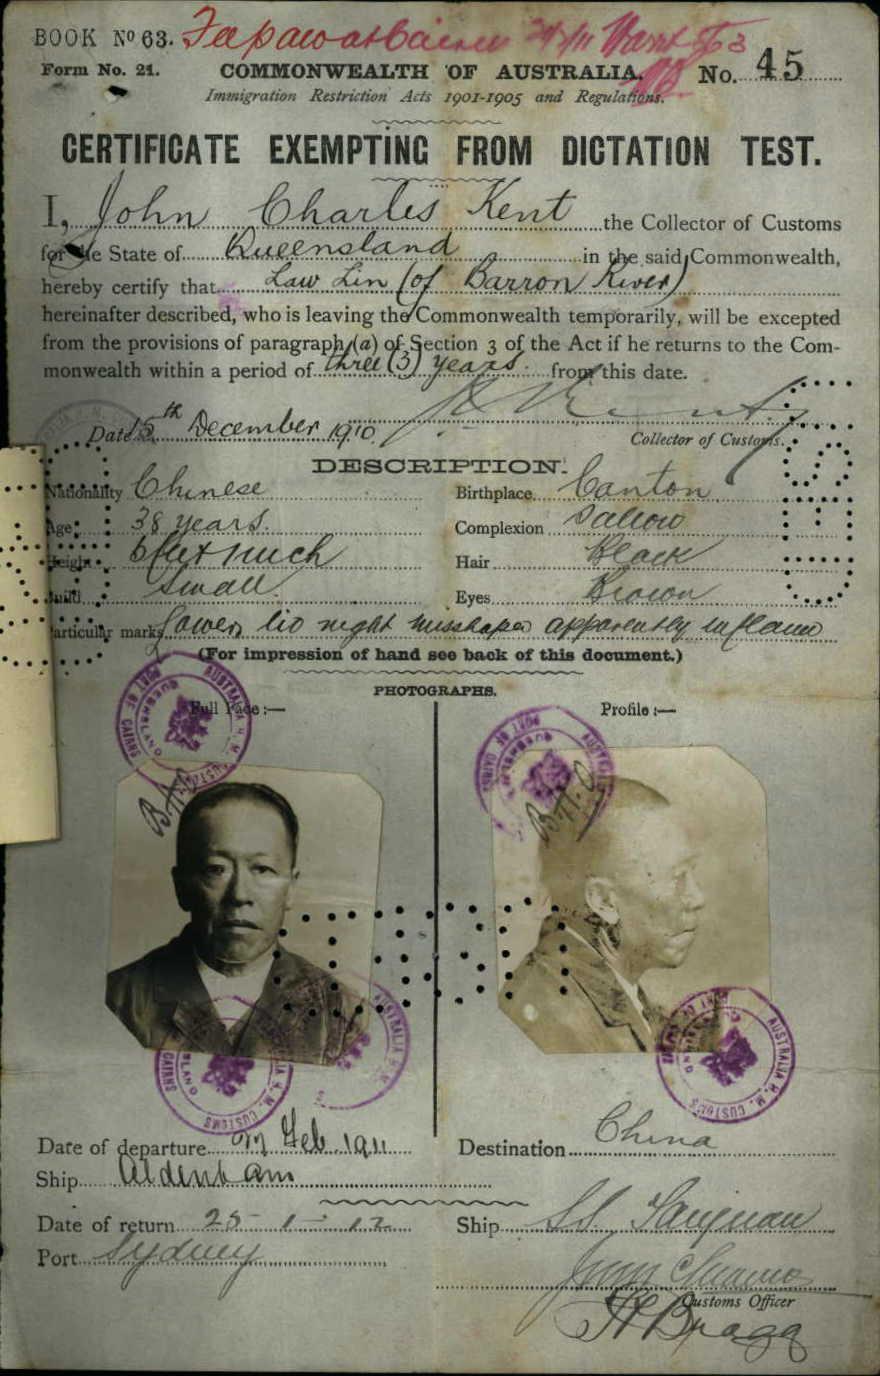 BOOK Nº 63.
Form No. 21. COMMONWEALTH OF AUSTRALIA. No. 45
Immigration Restriction Acts 1901-1905 and Regulations.
CERTIFICATE EXEMPTING FROM DICTATION TEST.
I, John Charles Kent the Collector of Customs
for the State of Queensland in the said Commonwealth,
hereby certify that Law Lin (of Barron River)
hereinafter described, who is leaving the Commonwealth temporarily, will be excepted
from the provisions of paragraph (a) of Section 3 of the Act if he returns to the Com-
monwealth within a period of three (3) years from this date.
Date 15th December 1910
Collector of Customs.
DESCRIPTION.
Nationality Chinese Birthplace Canton
Age 38 years. Complexion Sallow
Height Hair Black
Build Small. Eyes Brown
Particular marks lower lip right apparently
(For impression of hand see back of this document.)
PHOTOGRAPHS.
Full Face :— Profile :—
B.H.O B.H.O
AUSTRALIA H.M. CUSTOMS PORT OF CAIRNS QUEENSLAND
Date of departure Feb. 1911 Destination China
Ship Aldenham
Date of return 25-1-12 Ship
Port Sydney
Customs Officer
Bragg